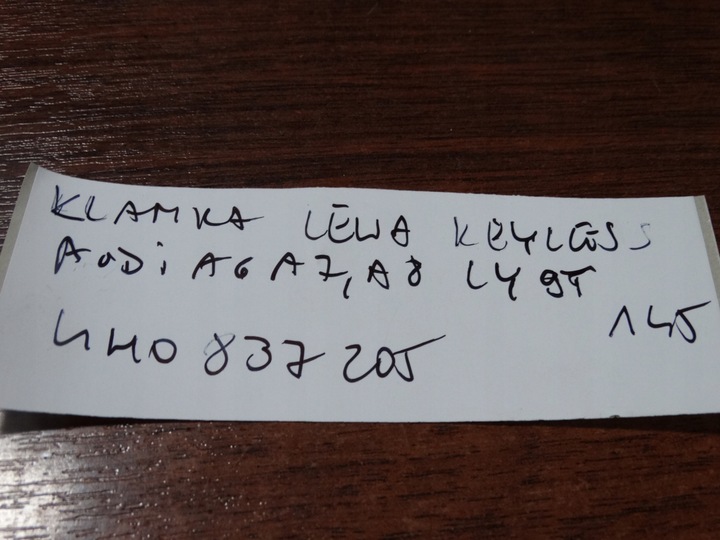 KLAMKA LEWA KEYLESS
AUDI A6 A7, A8 LY9T
145
4H0 837 205